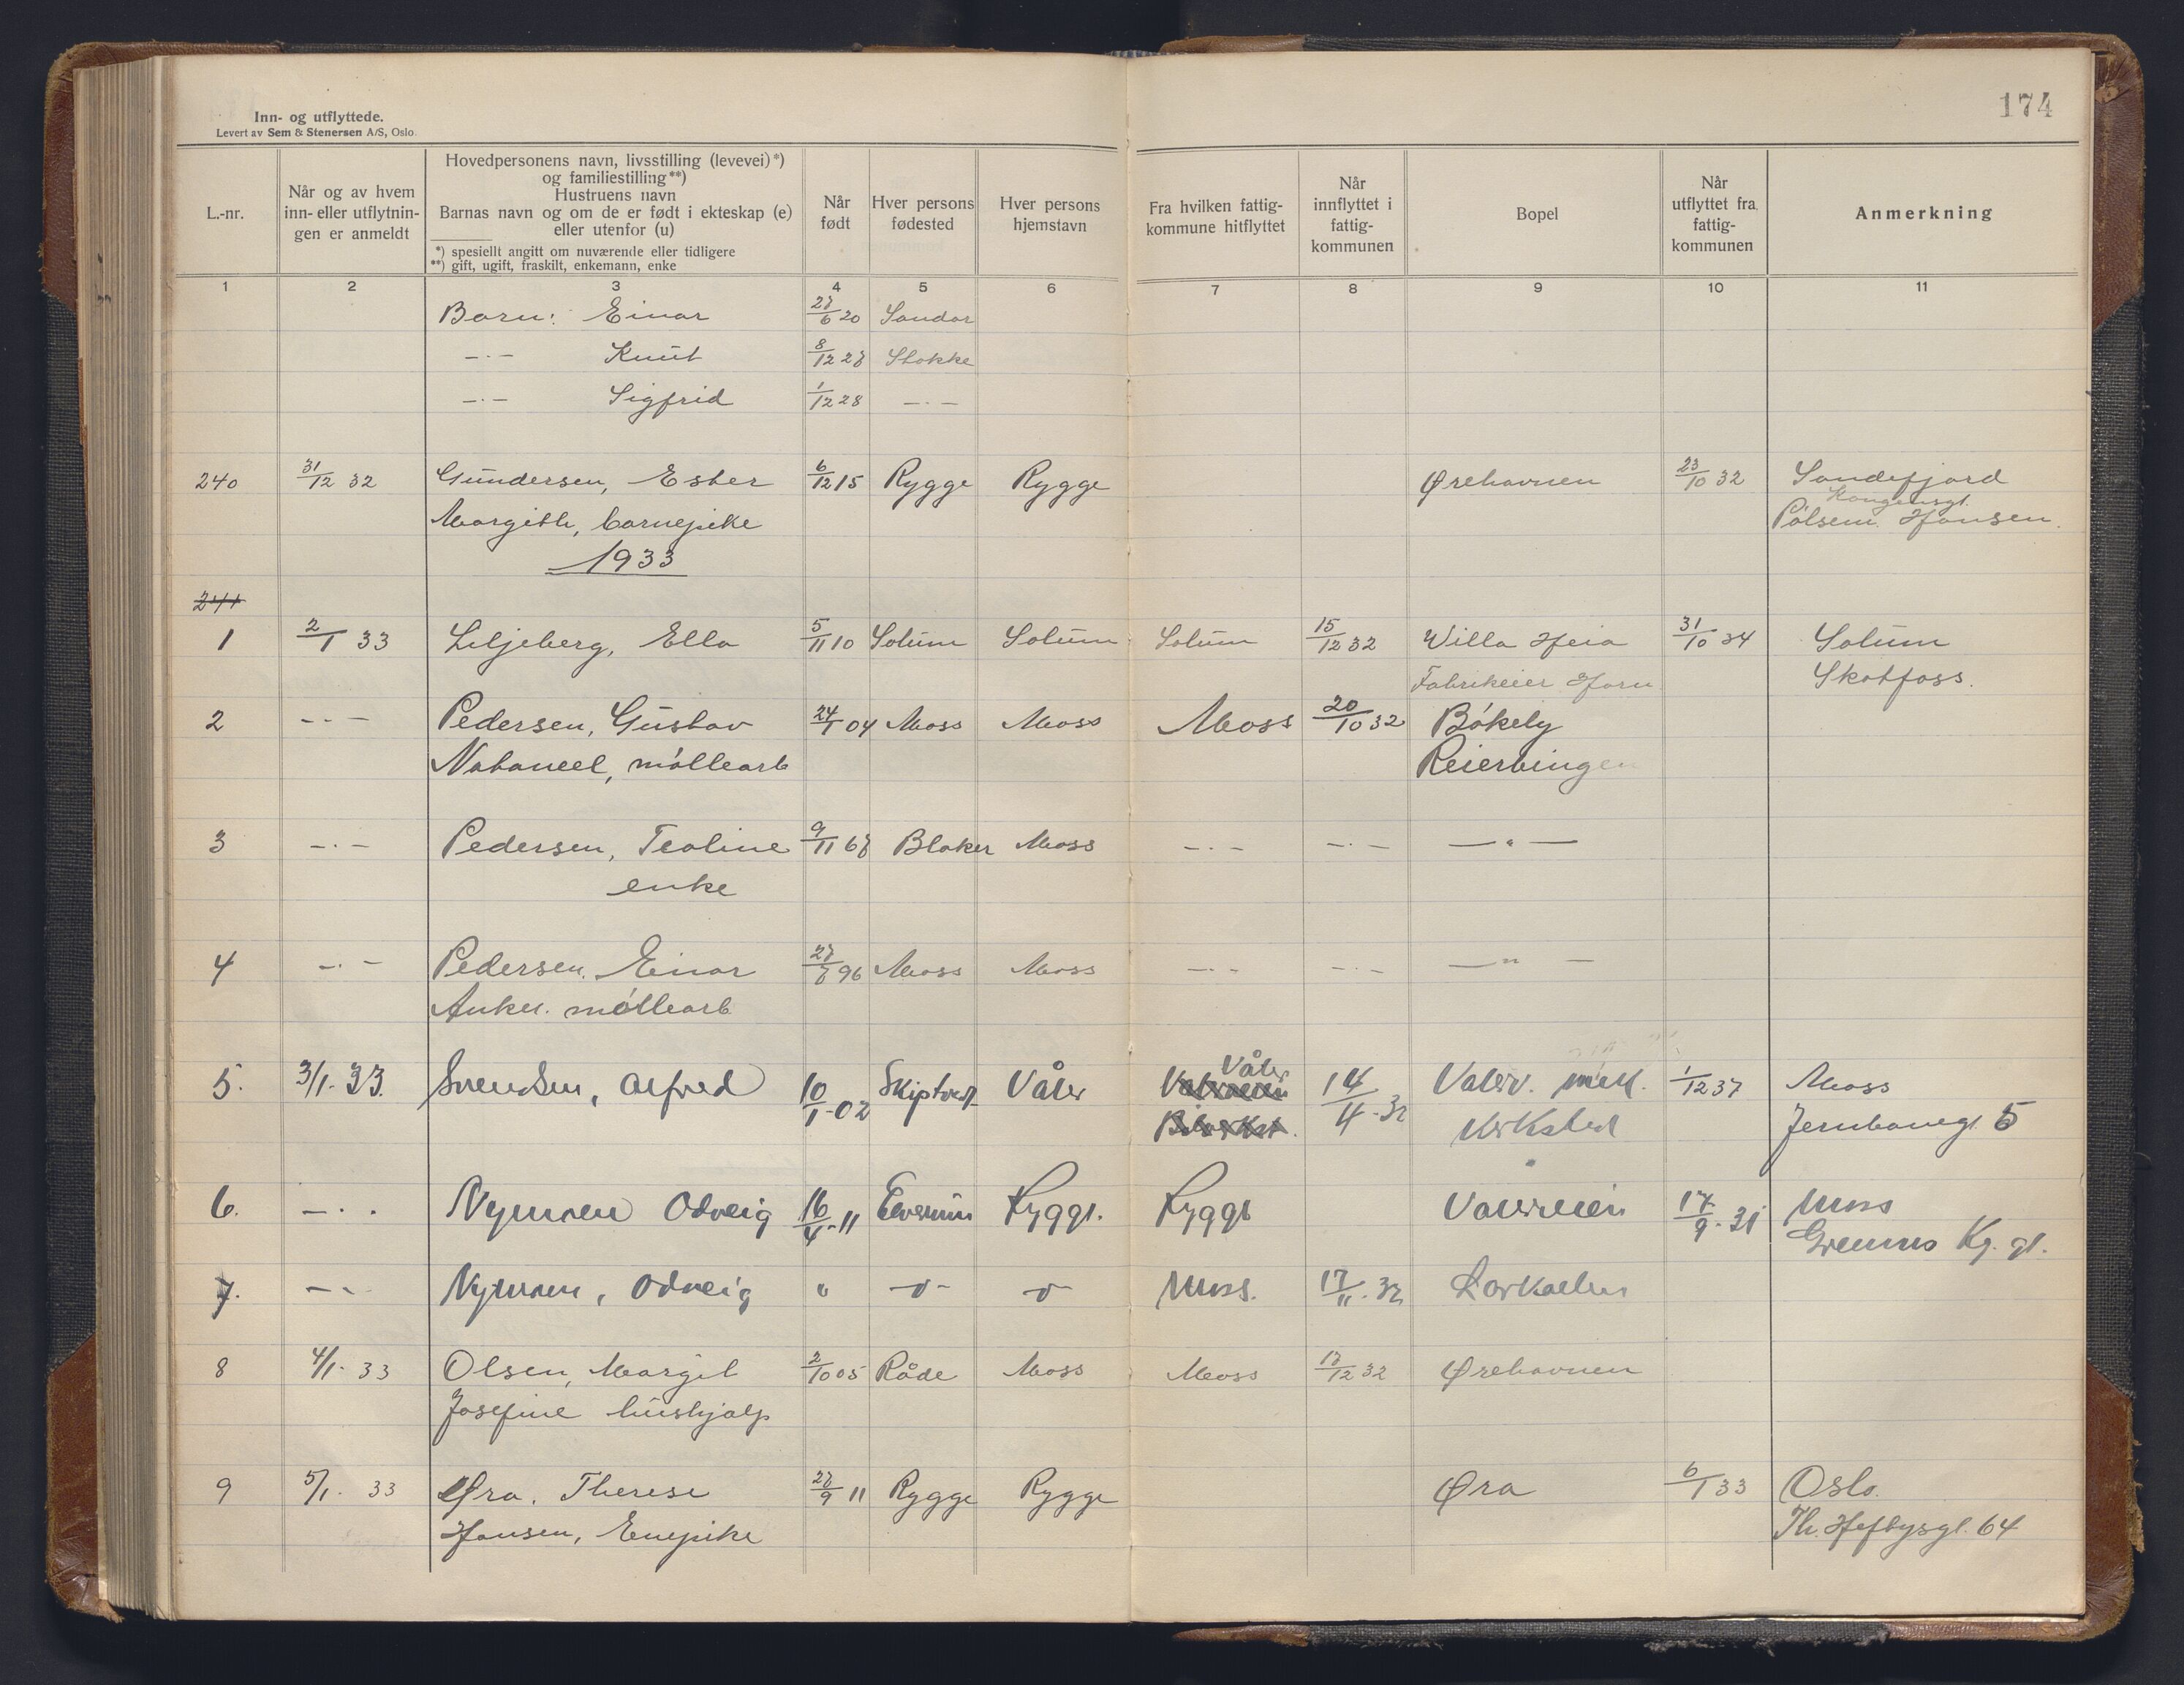 174
Inn- og utflyttede.
Levert av Sem & Stenersen A/S, Oslo.
L.-nr.
Når og av hvem
inn- eller utflytnin-
gen er anmeldt
Hovedpersonens navn, livsstilling (levevei)*)
og familiestilling**)
Hustruens navn
Barnas navn og om de er født i ekteskap (e)
eller utenfor (u)
*) spesiellt angitt om nuværende eller tidligere
**) gift, ugift, fraskilt, enkemann, enke
Når
født
Hver persons
fødested
Hver persons
hjemstavn
Fra hvilken fattig-
kommune hitflyttet
Når
innflyttet i
fattig-
kommunen
Bopel
Når
utflyttet fra
fattig-
kommunen
Anmerkning
1 2 3 4 5 6 7 8 9 10 11
Barn: Einar 27/6 20 Sandar
-"- Knut 8/12 27 Stokke
-"- Sigfrid 1/12 28 -"-
240 31/12 32 Gundersen, Ester 6/12 15 Rygge Rygge Ørehavnen 23/10 32 Sandefjord
Kongensgt.
Margith, barnepike Pølsem. Hansen.
1933
241
1 2/1 33 Liljeberg, Ella 5/11 10 Solum Solum Solum 15/12 32 Willa Heia 31/10 34 Solum
Fabrikeier Horn Skotfoss.
2 -"- Pedersen, Gustav 24/1 04 Moss Moss Moss 20/10 32 Bøkely
Nataneel, møllearb Reierbingen
3 -"- Pedersen, Tealine 9/11 67 Blaker Moss -"- -"- -"-
enke
4 -"- Pedersen, Einar 27/7 96 Moss Moss -"- -"- -"-
Anker. møllearb
5. 3/1. 33. Svendsen, Alfred 10/1-02 Skiptvet Våler Våler 14/11-32 Valer. 1/12 37 Moss
Jernbanegt. 5
6. -"- Nymoen Odveig 16/4-11 Elverum Rygge. Rygge Valerveien 17/9-31 Moss
Kg. gt.
7. -"- Nymoen, Odveig " -o- -o- Moss. 17/11-32
8 4/1- 33 Olsen, Margit 2/10 05 Råde Moss Moss 17/12 32 Ørehavnen
Josefine hushjalp
9 5/1- 33 Øra, Therese 27/9 11 Rygge Rygge Øra 6/1 33 Oslo.
Hansen, Enepike Th. Heftysgt. 64